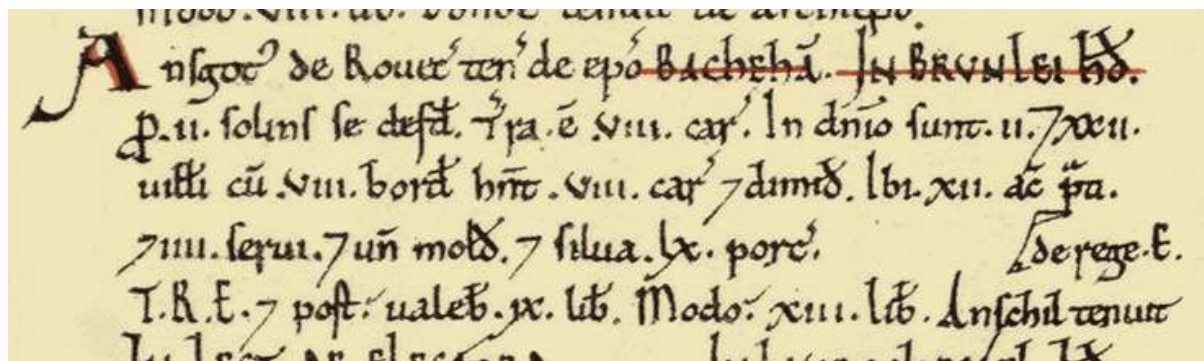 modo. VIII. lib. Hunc tenuit de archiepo.
Ansgot' de Rouec' ten' de epō BACHEHĀ. IN BRVNLEI HD̄.
p. II. solins se defd̄. T'ra. ē. VIII. car'. In dn̄io sunt. II. ⁊ XXII.
uilłi cū. VIII. bord̄ hn̄t. VIII. car' ⁊ dimid̄. Ibi. XII. ac̄ p̃ti.
⁊ IIII. serui. ⁊ un̄ mold̄. ⁊ silua. LX. porc'.
de rege. E.
T.R.E. ⁊ post: ualeb̄. IX. lib̄. Modo: XIII. lib̄. Anschil tenuit